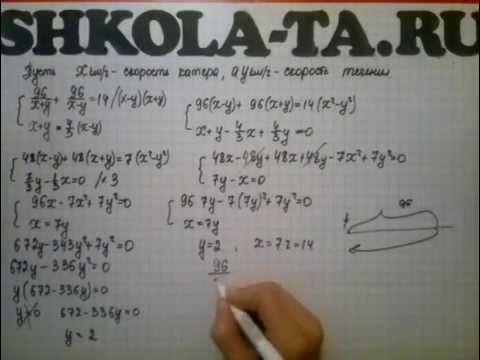 SHKOLA-TA.RU
Пусть x км/ч - скорость катера, а y км/ч - скорость течения
96/(x+y) + 96/(x-y) = 14 /(x-y)(x+y)
x+y = 4/3 (x-y)
96(x-y) + 96(x+y) = 14(x²-y²)
x+y - 4/3x + 4/3y = 0
48(x-y) + 48(x+y) = 7(x²-y²)
7/3y - 1/3x = 0 /×3
48x - 48y + 48x + 48y - 7x² + 7y² = 0
7y - x = 0
96x - 7x² + 7y² = 0
x = 7y
96 7y - 7(7y)² + 7y² = 0
x = 7y
96
672y - 343y² + 7y² = 0
y = 2, x = 7·2 = 14
672y - 336y² = 0
96
y(672 - 336y) = 0
y = 0 672 - 336y = 0
y = 2